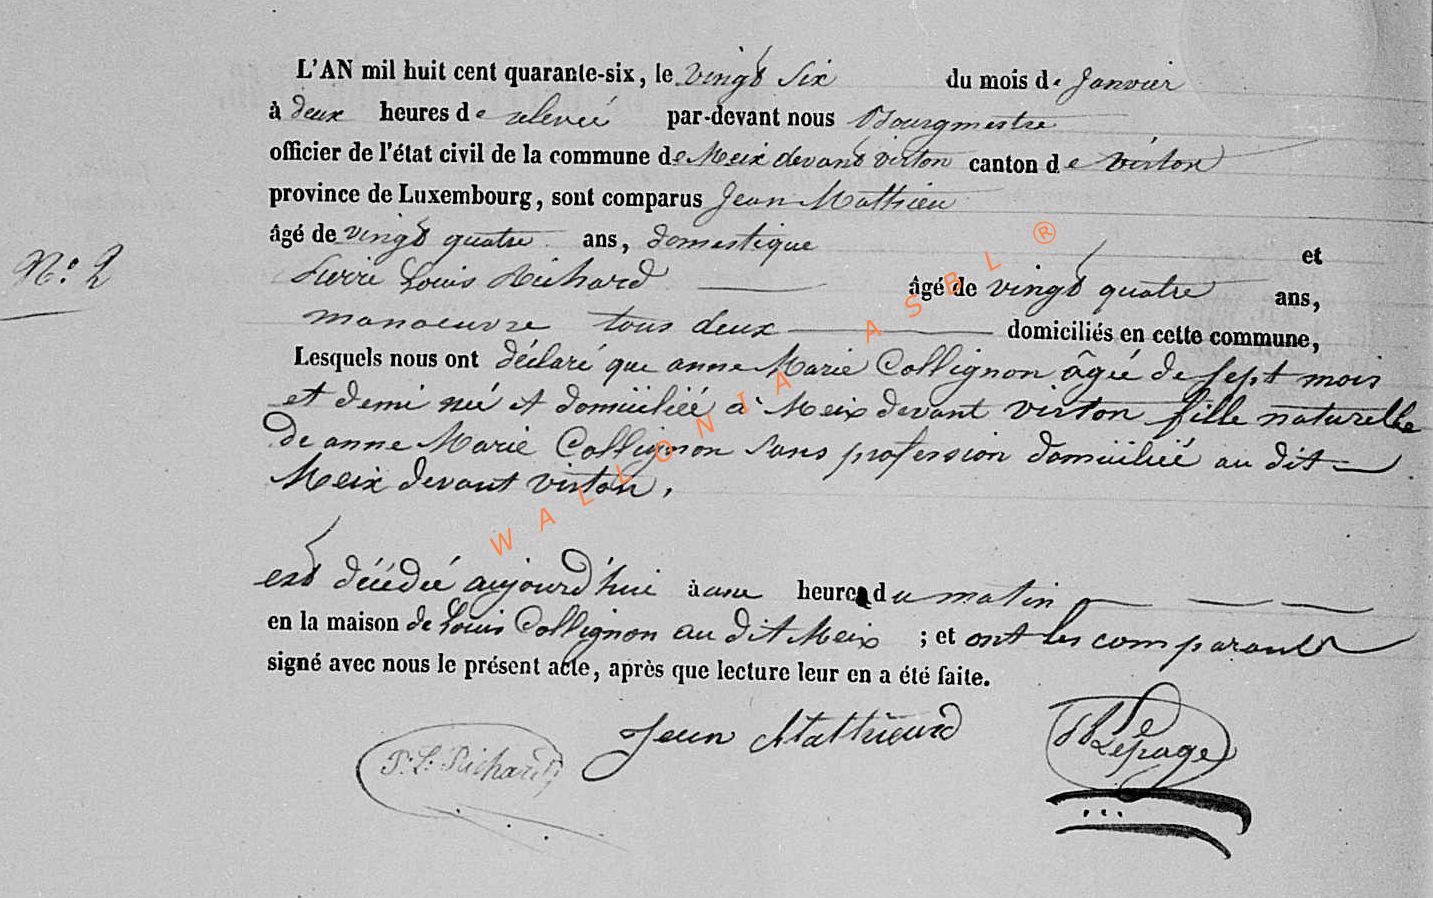 L'AN mil huit cent quarante-six, le vingt six du mois de Janvier
à deux heures de relevée par-devant nous Bourgmestre
officier de l'état civil de la commune de Meix devant virton canton de virton
province de Luxembourg, sont comparus Jean Mathieu
âgé de vingt quatre ans, domestique et
N.o 2
Pierre Louis Richard âgé de vingt quatre ans,
manoeuvre tous deux domiciliés en cette commune,
Lesquels nous ont déclaré que anne Marie Collignon âgée de sept mois
et demi née et domiciliée à Meix devant virton fille naturelle
de anne Marie Collignon sans profession domiciliée au dit
Meix devant virton,
est décédée aujourd'hui à une heure du matin
en la maison de Louis Collignon au dit Meix ; et ont les comparants
signé avec nous le présent acte, après que lecture leur en a été faite.
P. L. Richard Jean Mathieu Lepage
WALLONIA ASBL ®